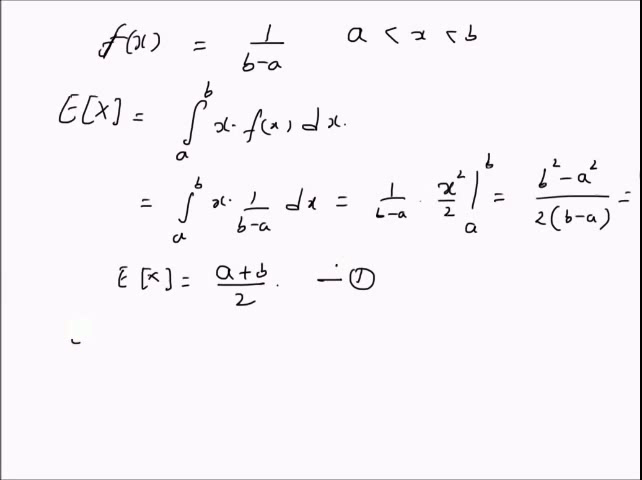 f(x) = 1/(b-a) a < x < b
E[X] = ∫_a^b x. f(x) dx.
= ∫_a^b x. 1/(b-a) dx = 1/(b-a) . x²/2 |_a^b = (b² - a²)/(2(b-a)) =
E[x] = (a+b)/2 . — ①